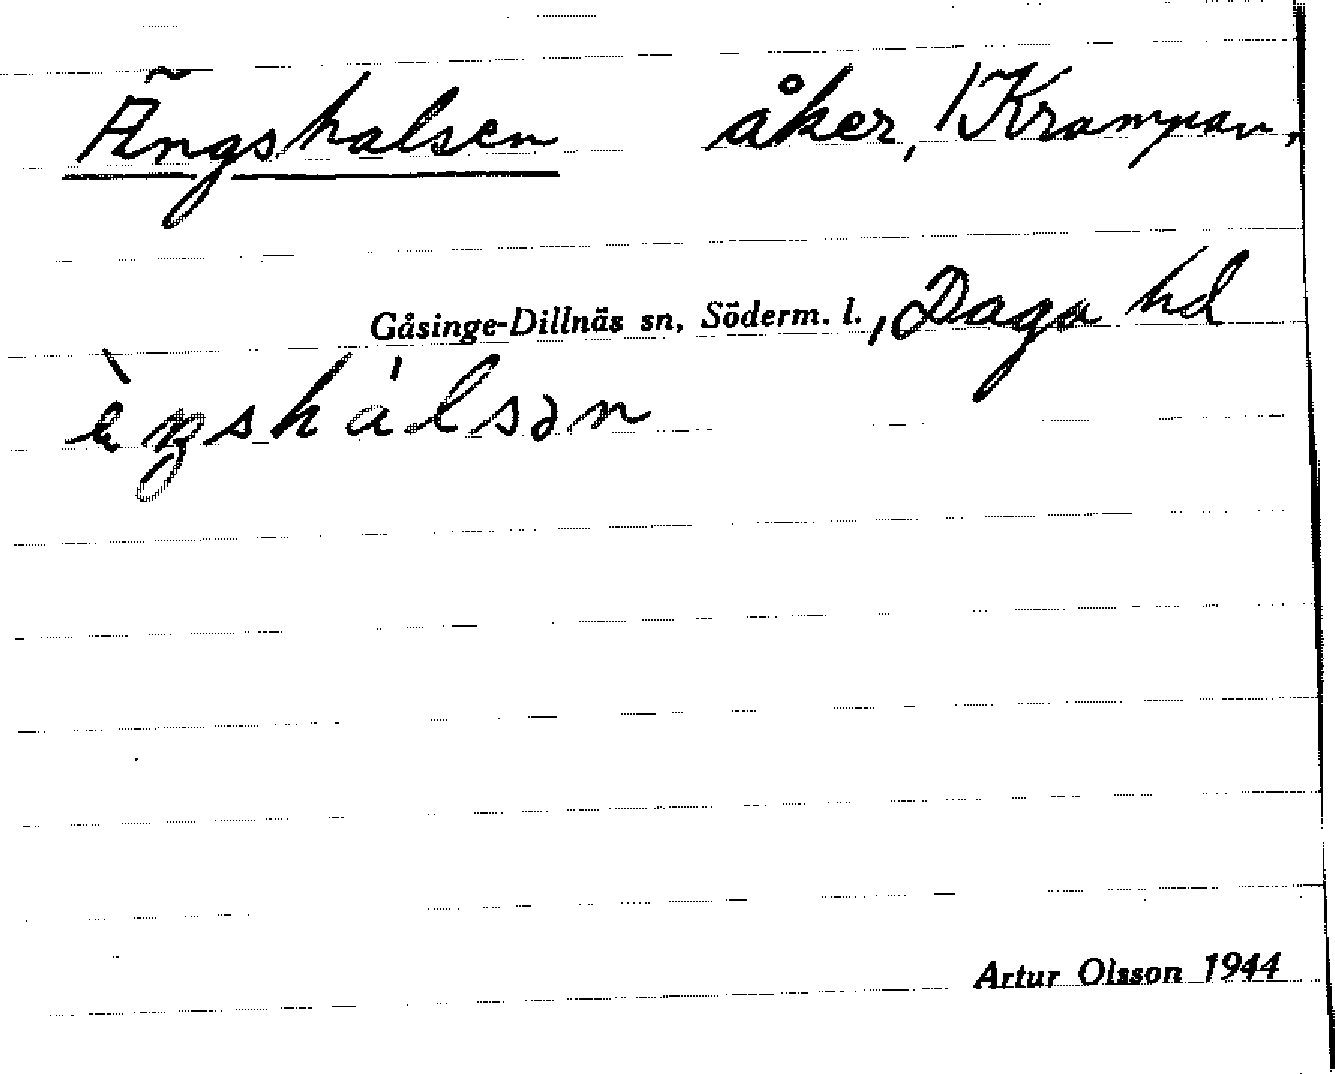 Ängshalsen åker, Krampan,
Gåsinge-Dillnäs sn, Söderm. l., Daga hd
ὲŋshálsən
Artur Olsson 1944